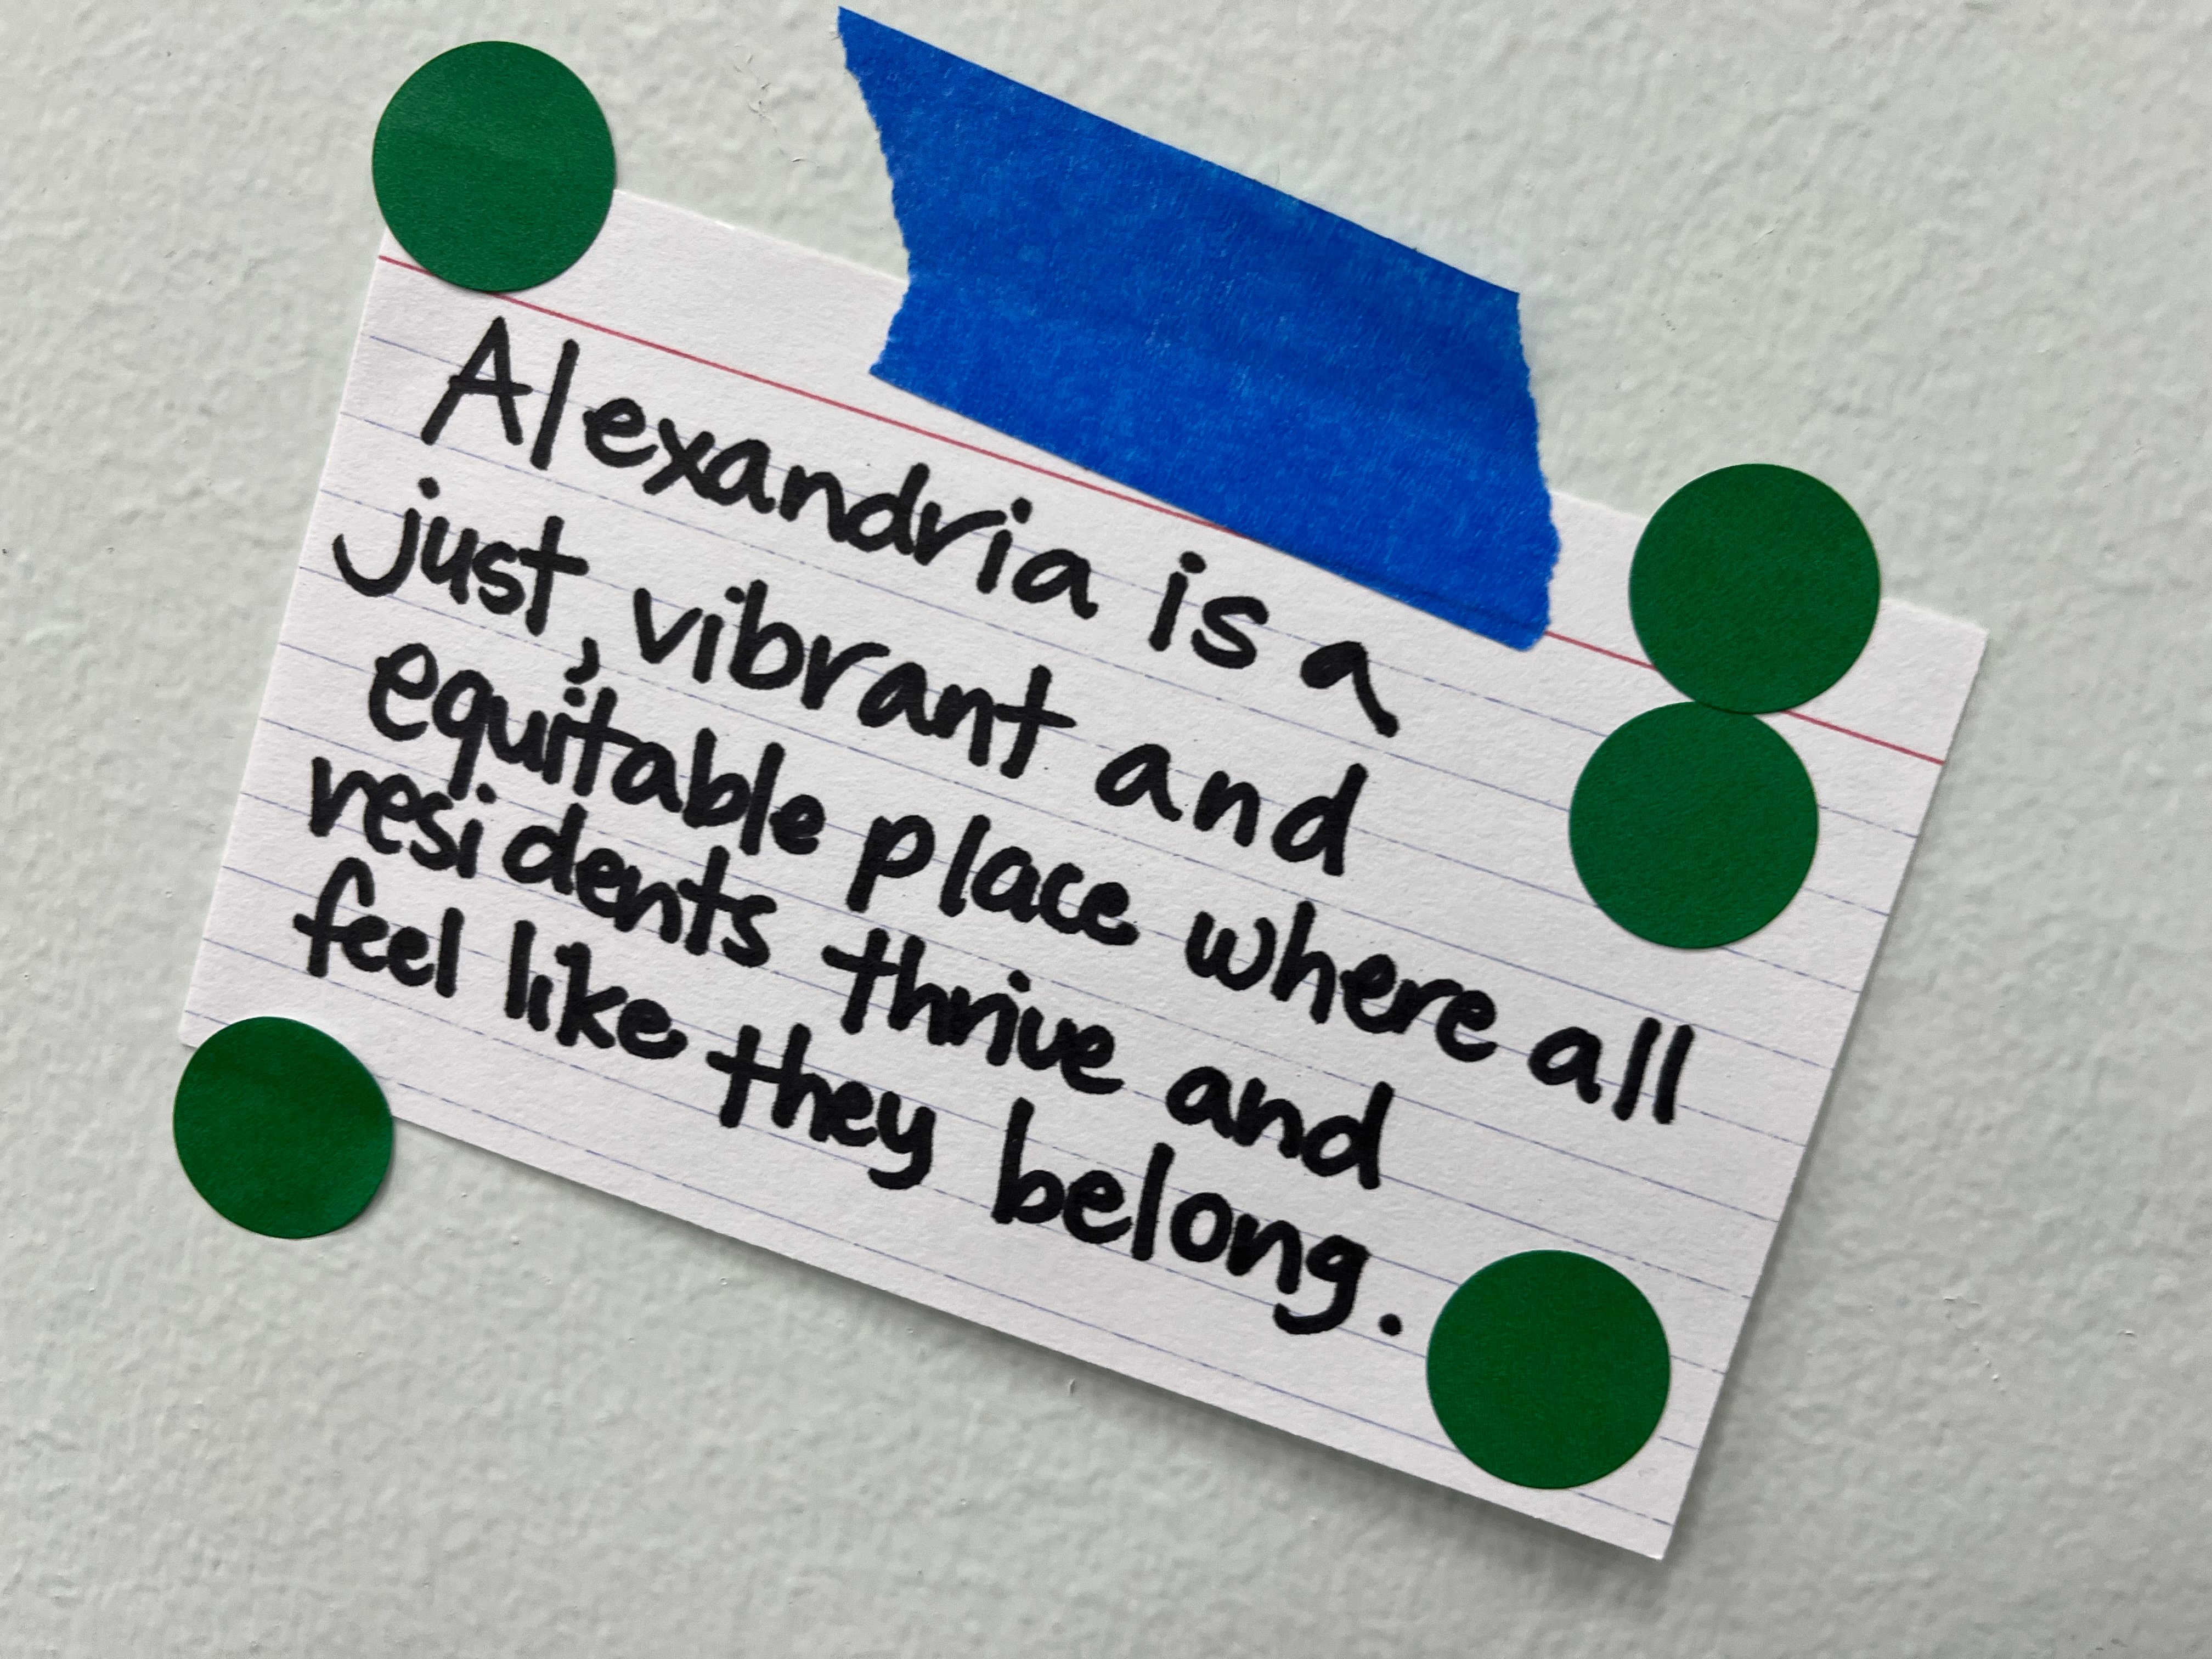 Alexandria is a
just, vibrant and
equitable place where all
residents thrive and
feel like they belong.